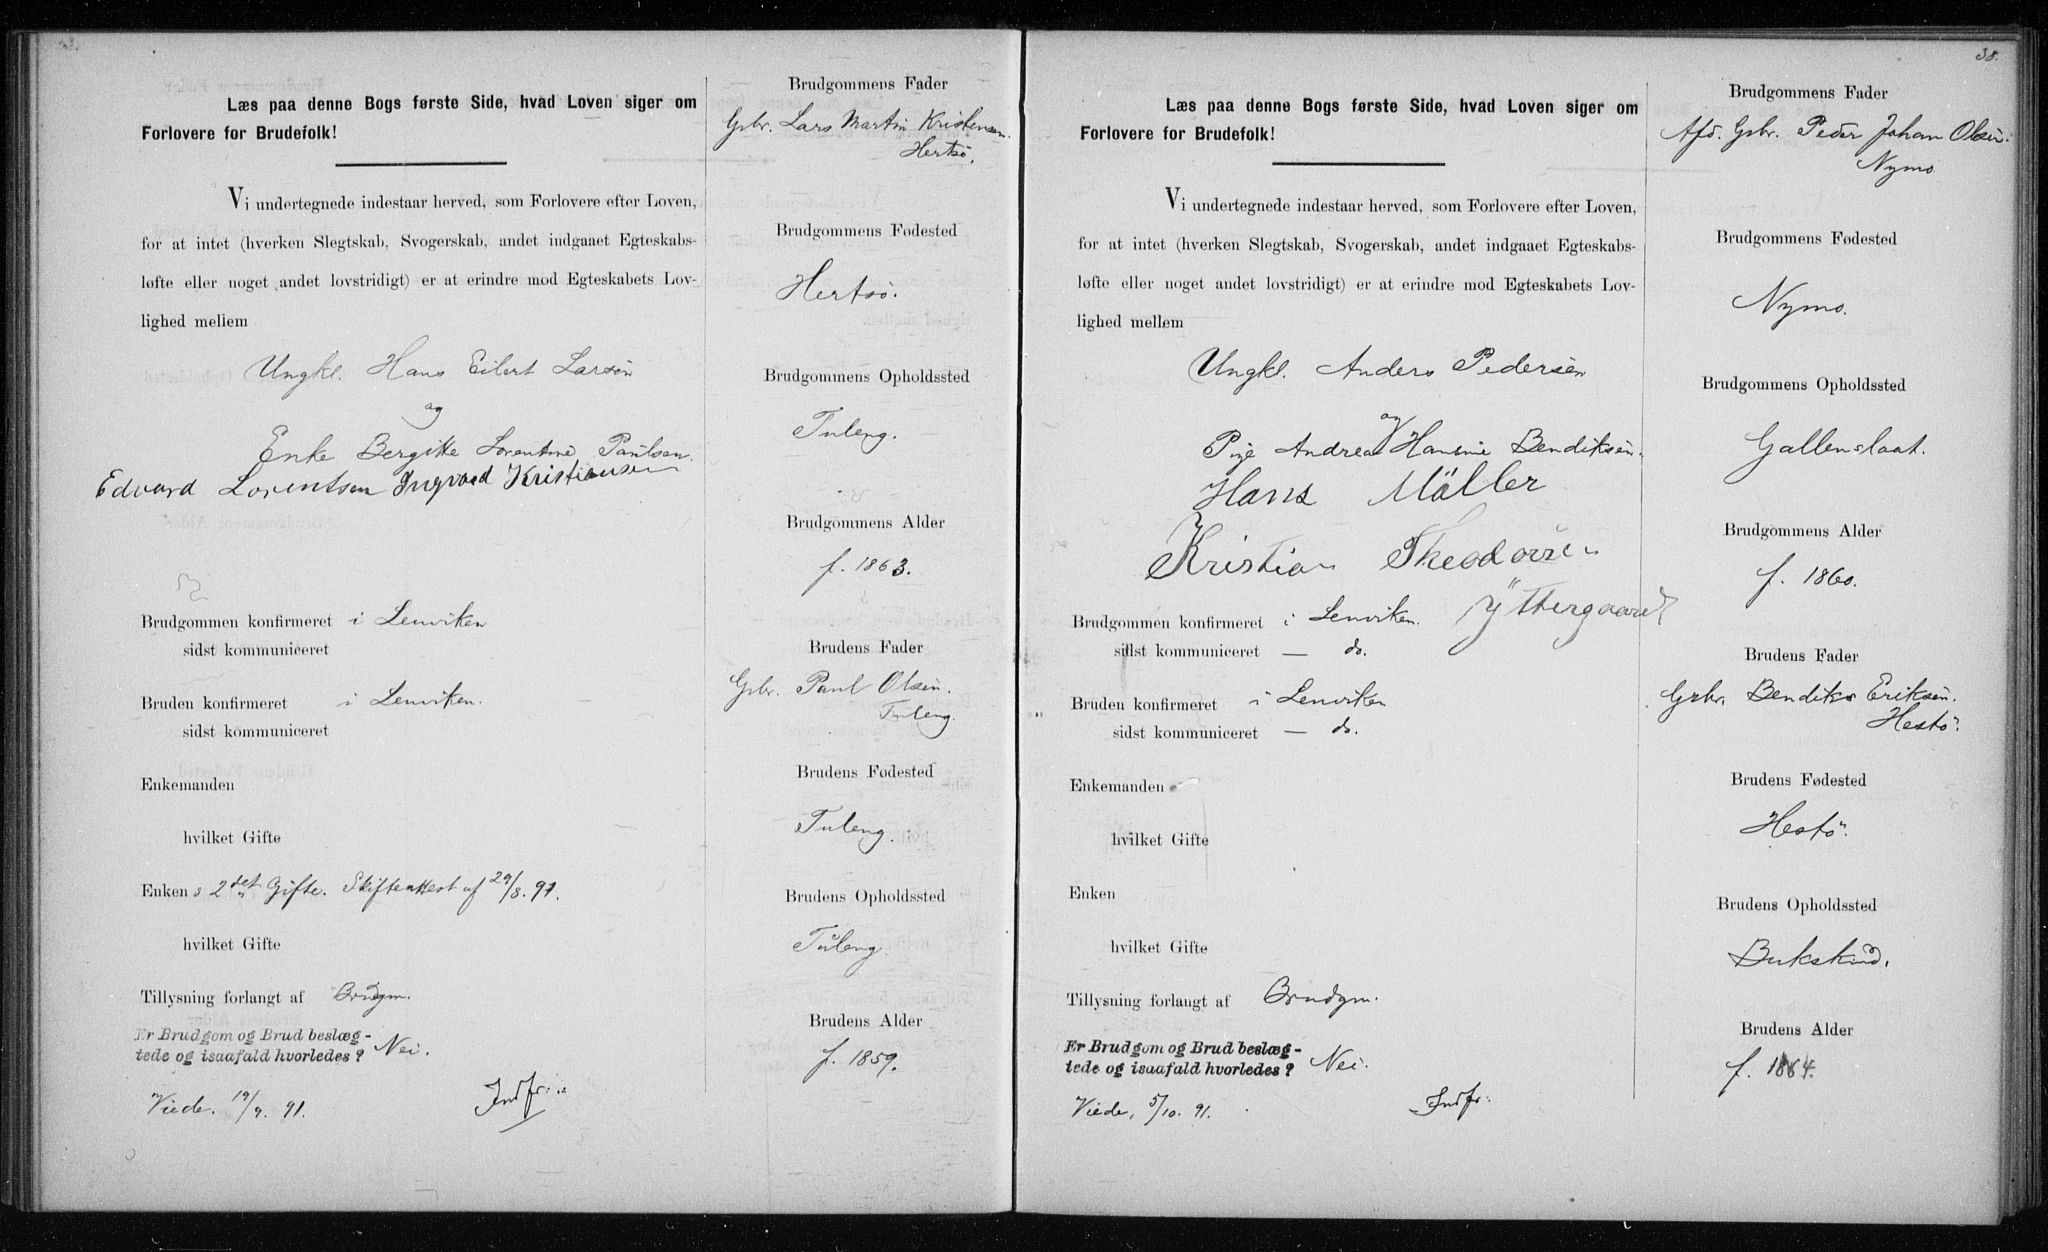 Læs paa denne Bogs første Side, hvad Loven siger om
Forlovere for Brudefolk!
Vi undertegnede indestaar herved, som Forlovere efter Loven,
for at intet (hverken Slegtskab, Svogerskab, andet indgaaet Egteskabs-
løfte eller noget andet lovstridigt) er at erindre mod Egteskabets Lov-
lighed mellem
Ungkl. Hans Eilert Larsen
og
Enke Bergitte Lorentine Paulsen.
Edvard Lorentsen Ingvard Kristiansen
Brudgommen konfirmeret i Lenviken
sidst kommuniceret
Bruden konfirmeret i Lenviken.
sidst kommuniceret
Enkemanden
hvilket Gifte
Enkens 2det Gifte. Skifteattest af 29/8. 91.
hvilket Gifte
Tillysning forlangt af Brudgm.
Er Brudgom og Brud beslæg-
tede og isaafald hvorledes? Nei.
Viede. 19/9. 91. Indfr.
Brudgommens Fader
Gbr. Lars Martin Kristensen.
Hertsö.
Brudgommens Fødested
Hertsö.
Brudgommens Opholdssted
Tuleng.
Brudgommens Alder
f. 1863.
Brudens Fader
Gbr. Paul Olsen.
Tuleng.
Brudens Fødested
Tuleng.
Brudens Opholdssted
Tuleng.
Brudens Alder
f. 1859.
38.
Læs paa denne Bogs første Side, hvad Loven siger om
Forlovere for Brudefolk!
Vi undertegnede indestaar herved, som Forlovere efter Loven,
for at intet (hverken Slegtskab, Svogerskab, andet indgaaet Egteskabs-
løfte eller noget andet lovstridigt) er at erindre mod Egteskabets Lov-
lighed mellem
Ungkl. Anders Pedersen
og
Pige Andrea Hansine Bendiksen.
Hans Möller
Kristian Theodorsen
Yttergaard
Brudgommen konfirmeret i Lenviken.
sidst kommuniceret — do.
Bruden konfirmeret i Lenviken
sidst kommuniceret — do.
Enkemanden
hvilket Gifte
Enken
hvilket Gifte
Tillysning forlangt af Brudgm.
Er Brudgom og Brud beslæg-
tede og isaafald hvorledes? Nei.
Viede, 5/10. 91. Indfr.
Brudgommens Fader
Afd. Gbr. Peder Johan Olsen.
Nymo
Brudgommens Fødested
Nymo.
Brudgommens Opholdssted
Gallenslaat.
Brudgommens Alder
f. 1860.
Brudens Fader
Gbr. Bendiks Eriksen.
Hestö.
Brudens Fødested
Hestö.
Brudens Opholdssted
Bukskind.
Brudens Alder
f. 1864.